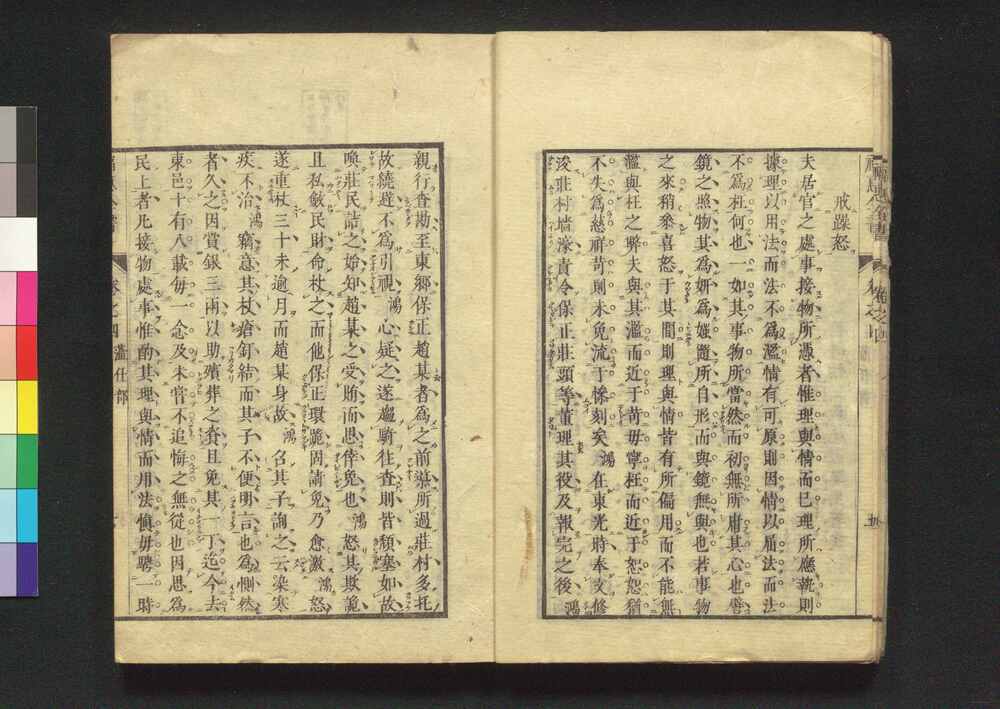 戒躁怒
夫居官之處事接物所憑者惟理與情而已理所應執則
據理以用法而法不爲濫情有可原則因情以屈法而法
不爲枉何也一如其事物所當然而初無所庸其心也譬
鏡之照物其爲妍爲媸隨所自形而與鏡無與也若事物
之來稍叅喜怒于其間則理與情皆有所偏用而不能無
濫與枉之弊夫與其濫而近于苛毋寧枉而近于恕恕猶
不失爲慈祥苛則未免流于慘刻矣鴻在東光時奉文修
浚莊村墻濠責令保正莊頭等董理其役及報完之後鴻
親行查勘至東鄉保正趙某者爲之前導所過莊村多托
故繞避不爲引視鴻心疑之遂遍騎往查則皆頽塞如故
喚莊民詰之始知趙某之受賄而思倖免也鴻怒其欺詭
且私斂民財命杖之而他保正環跪固請免乃愈激鴻怒
遂重杖三十未逾月而趙某身故鴻名其子詢之云染寒
疾不治鴻竊意其杖瘡釘結而其子不便明言也爲惻然
者久之因賞銀三兩以助殯葬之資且免其一丁迄今去
東邑十有八載每一念及未嘗不追悔之無從也因思爲
民上者凡接物處事惟酌其理與情而用法愼毋騁一時